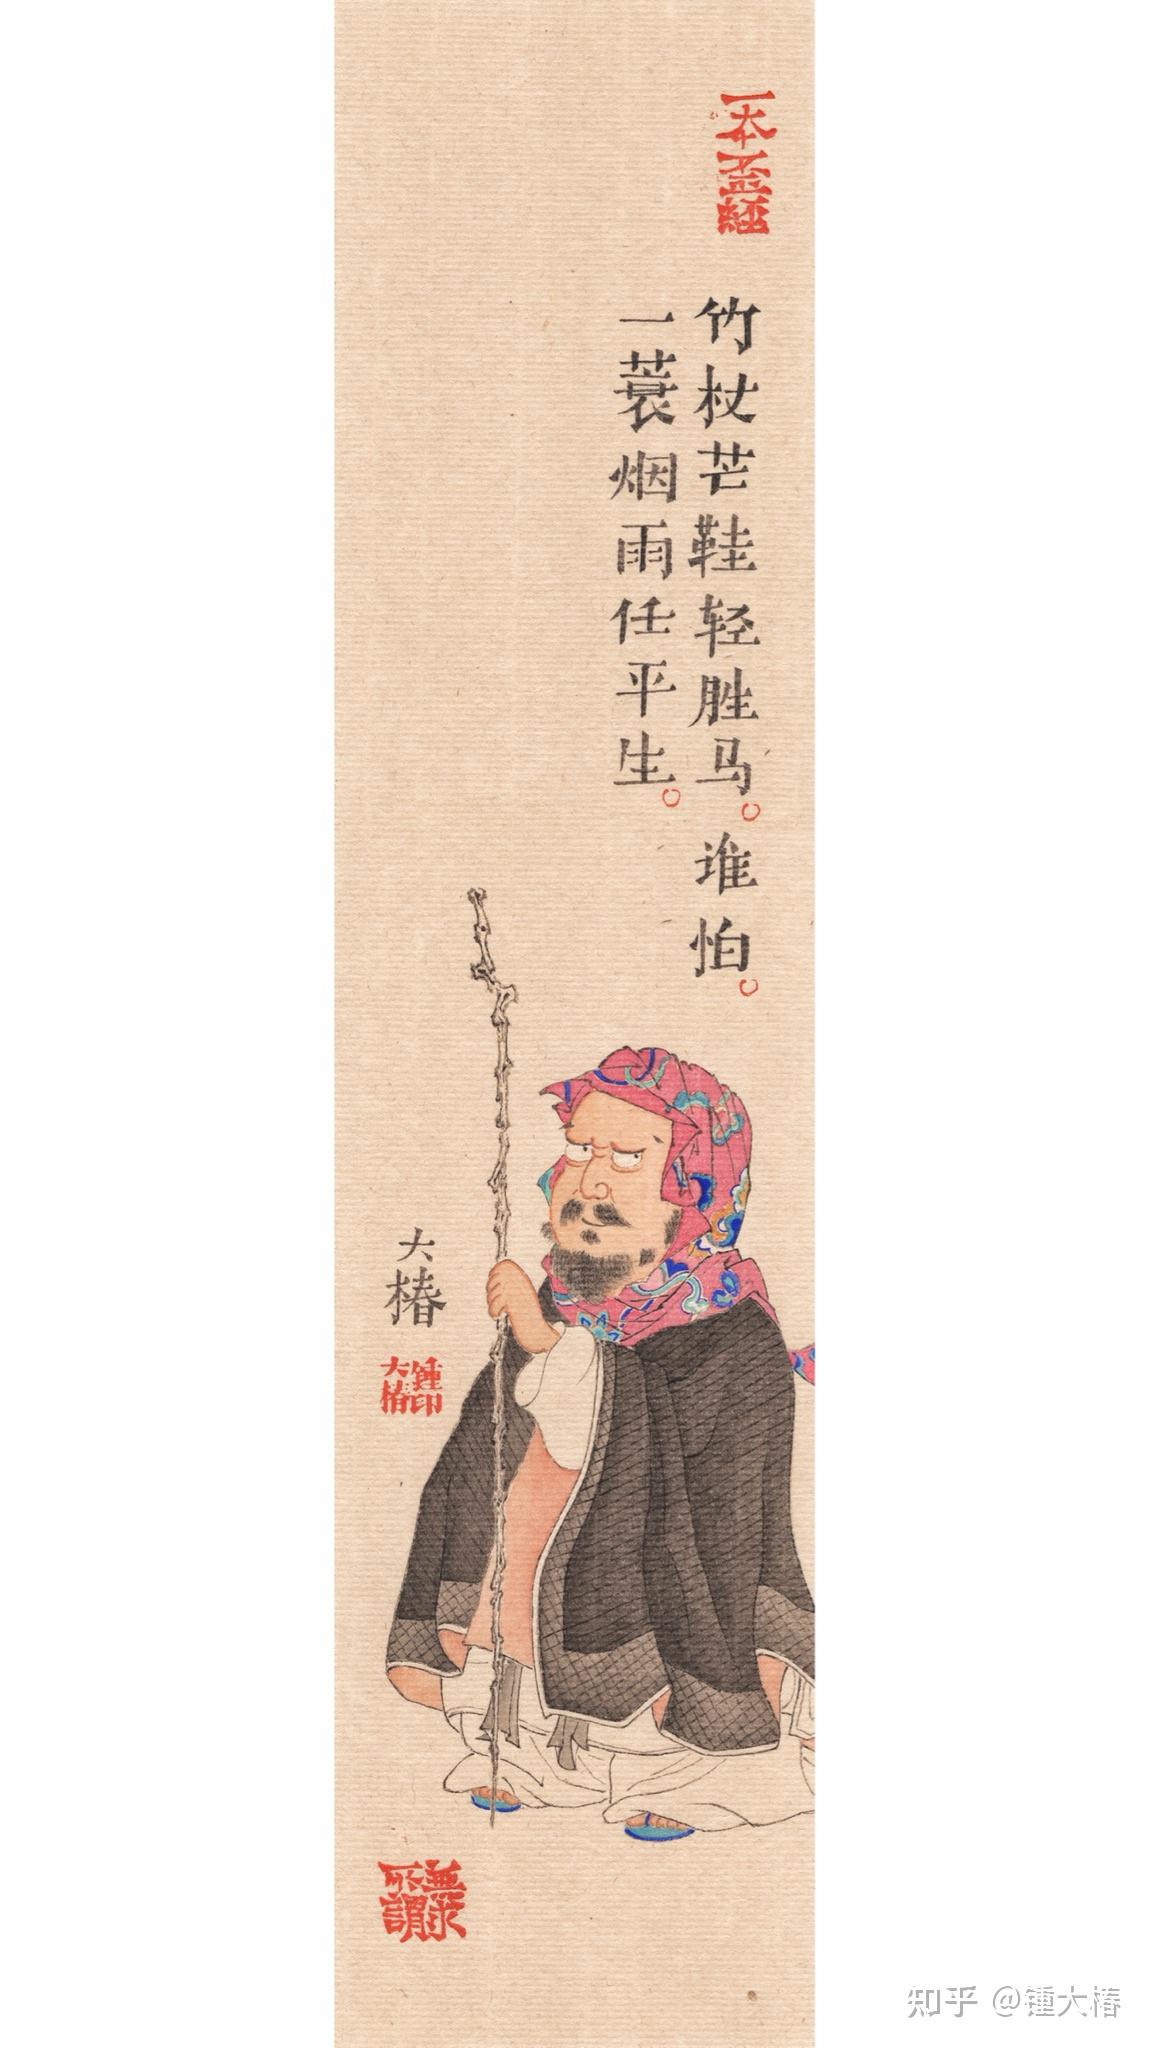 竹杖芒鞋轻胜马。谁怕。
一蓑烟雨任平生。
大椿
锺印
大椿
知乎 @锺大椿